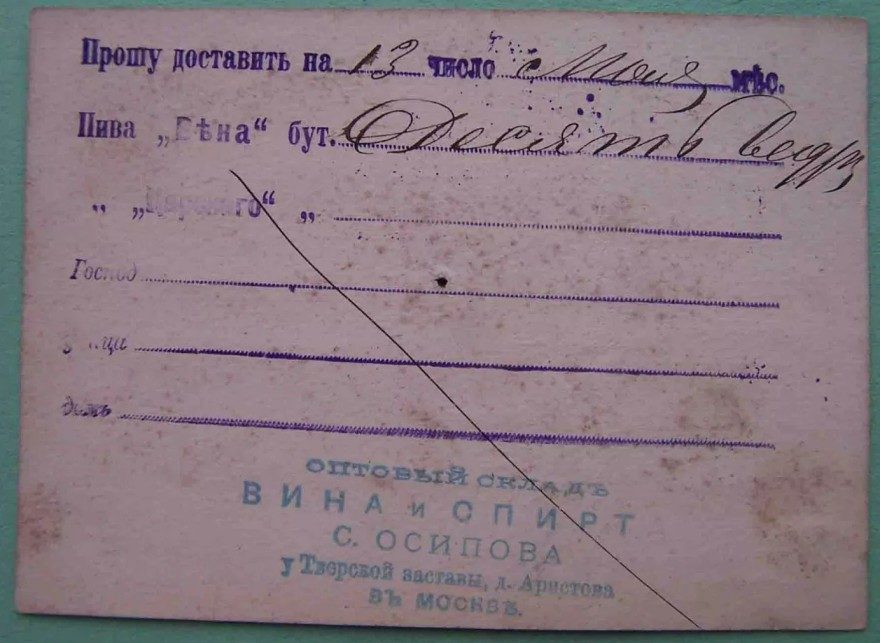 Прошу доставить на 13 число с Мая мѣс.
Пива „Вѣна“ бут. Десять ведръ
„ „Царского“ „
Господ
улица
домъ
ОПТОВЫЙ СКЛАДЪ
ВИНА и СПИРТ
С. ОСИПОВА
у Тверской заставы, д. Аристова
ВЪ МОСКВѢ.